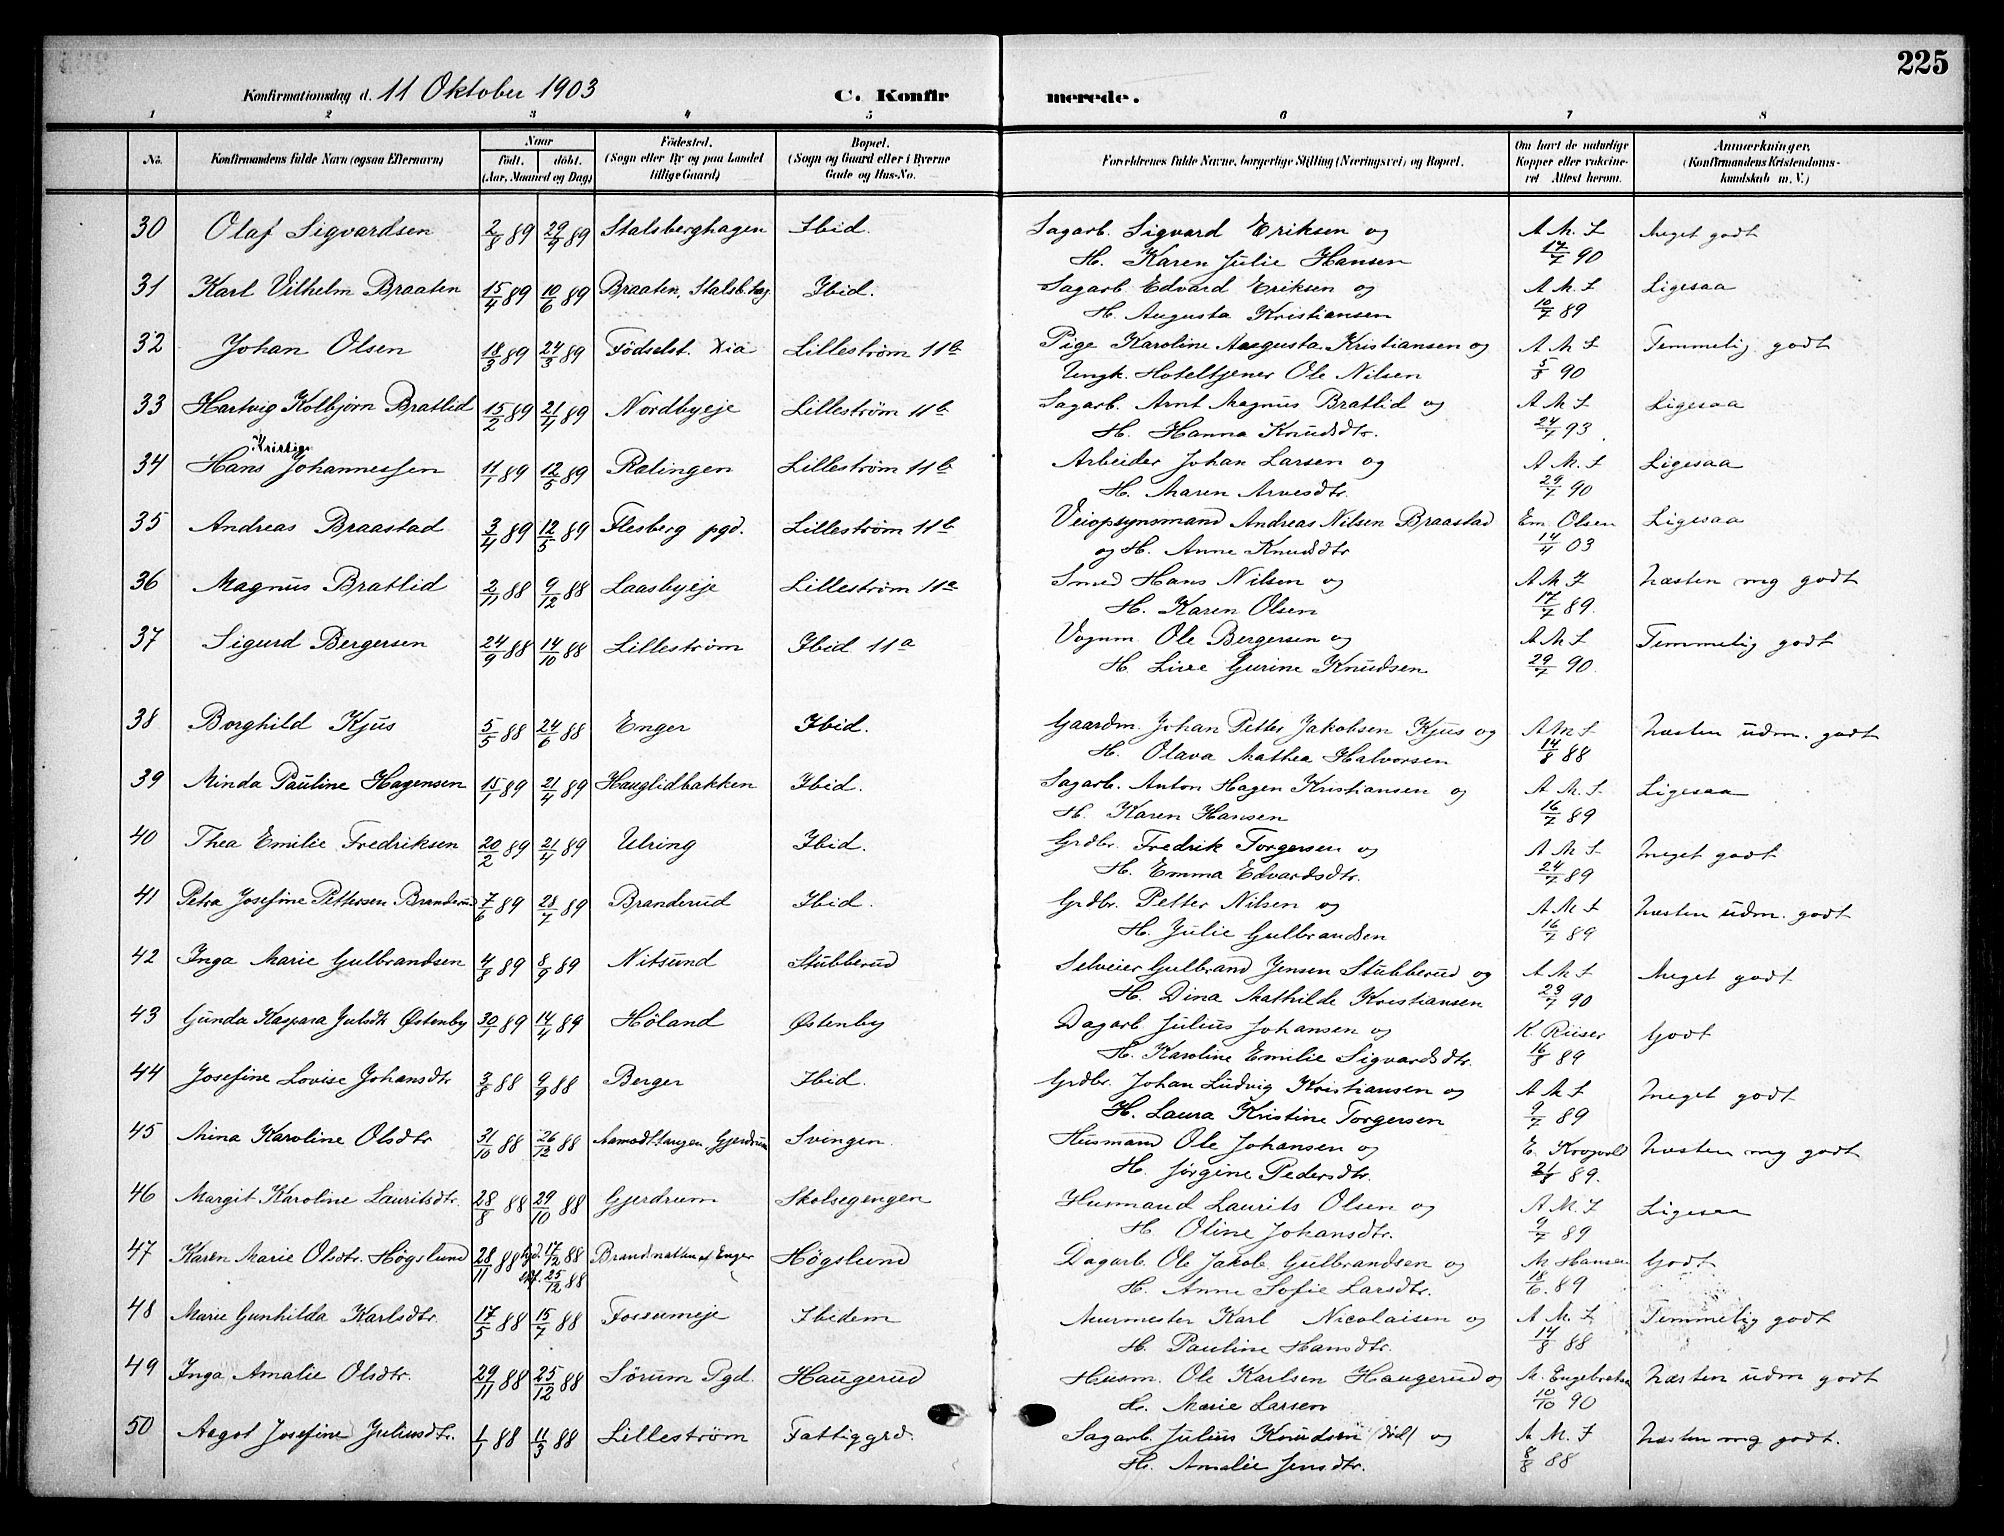 225
Konfirmationsdag d. 11 Oktober 1903 C. Konfirmerede.
1 2 3 4 5 6 7 8
No. Konfirmandens fulde Navn (ogsaa Efternavn) Naar født. døbt. (Aar, Maaned og Dag) Fødested. (Sogn eller By og paa Landet tillige Gaard) Bopæl. (Sogn og Gaard eller i Byerne Gade og Hus-No. Forældrenes fulde Navne, borgerlige Stilling (Næringsvei) og Bopæl. Om havt de naturlige Kopper eller vakcineret Attest herom. Anmærkninger. (Konfirmandens Kristendomskundskab m. V.)
30 Olaf Sigvardsen 2/8 89 29/9 89 Stalsberghagen Ibid. Sagarb. Sigvard Eriksen og A M. S Meget godt
H. Karen Julie Hansen 17/7 90
31 Karl Vilhelm Braaten 15/4 89 10/6 89 Braaten, Stalsb.hag Ibid. Sagarb. Edvard Eriksen og A M. S Ligesaa
H. Augusta Kristiansen 10/7 89
32 Johan Olsen 18/3 89 24/3 89 Fødselst. Xia Lillestrøm 11b Pige Karoline Augusta Kristiansen og A M S Temmelig godt
Ungk. Hoteltjener Ole Nilsen 5/8 90
33 Hartvig Kolbjørn Bratlid 15/2 89 21/4 89 Nordbyeje Lillestrøm 11b Sagarb. Arnt Magnus Bratlid og A M S Ligesaa
H. Hanna Knudsdtr. 24/7 93
34 Hans Johannessen 11/1 89 12/5 89 Rælingen Lillestrøm 11b Arbeider Johan Larsen og A M. S Ligesaa
H. Maren Arvesdtr. 29/7 90
35 Andreas Braastad 3/4 89 12/5 89 Flesberg pgd. Lillestrøm 11b Veiopsynsmand Andreas Nilsen Braastad Em. Olsen Ligesaa
og H. Anne Knudsdtr 14/4 03
36 Magnus Bratlid 2/11 88 9/12 88 Laasbyeje Lillestrøm 11a Smed Hans Nilsen og A M. S Næsten mg godt
H. Karen Olsen 17/7 89.
37 Sigurd Bergersen 24/9 88 14/10 88 Lillestrøm Ibid 11a Vognm. Ole Bergersen og A M. S Temmelig godt
H. Live Gurine Knudsen 29/7 90.
38 Borghild Kjus 5/5 88 24/6 88 Enger Ibid. Gaardm. Johan Petter Jakobsen Kjus og A M S Næsten udm. godt
H. Olava Mathea Halvorsen 14/8 88
39 Minda Pauline Hagensen 15/1 89 21/4 89 Hauglidbakken Ibid. Sagarb. Anton Hagen Kristiansen og A M. S Ligesaa
H. Karen Hansen 16/7 89
40 Thea Emilie Fredriksen 20/2 89 21/4 89 Ulring Ibid. Grdbr. Fredrik Torgersen og A M S Meget godt
H. Emma Edvardsdtr. 24/7 89
41 Petra Josefine Pettersen Branderud 7/6 89 28/7 89 Branderud Ibid. Grdbr. Petter Nilsen og A M S Næsten udm. godt
H. Julie Gulbrandsen 16/7 89
42 Inga Marie Gulbrandsen 4/8 89 8/9 89 Nitsund Stubberud Selveier Gulbrand Jensen Stubberud og A M S Meget godt
H. Dina Mathilde Kristiansen 29/7 90
43 Gunda Kaspara Julsdtr Østenby 30/1 89 14/4 89 Høland Østenby Dagarb. Julius Johansen og K. Riiser Godt
H. Karoline Emilie Sigvardsdtr. 16/8 89
44 Josefine Lovise Johansdtr 3/8 88 9/9 88 Berger Ibid. Grdbr. Johan Ludvig Kristiansen og A M S Meget godt
H. Laura Kristine Torgersen 9/7 89
45 Mina Karoline Olsdtr 31/10 88 26/12 88 Aamodttangen Gjerdrum Svingen. Husmand Ole Johansen og E. Krogvold Næsten mg godt
H. Jørgine Pedersdtr. 21/8 89.
46 Margit Karoline Lauritsdtr. 28/8 88 29/10 88 Gjerdrum Skolsegengen Husmand Laurits Olsen og A M. S Ligesaa
H. Oline Johansdtr. 9/7 89
47 Karen Marie Olsdtr. Høgslund 28/11 88 hjd. 17/12 88 Brandnatten af Enger Høgslund Dagarb. Ole Jakob Gulbrandsen og M Hansen Godt
stf. 25/12 88 H. Anne Sofie Larsdtr. 18/6 89
48 Marie Gunhilda Karlsdtr. 17/5 88 15/7 88 Fossumeje Ibidem Murmester Karl Nicolaisen og A M. S Temmelig godt
H. Pauline Hansdtr. 14/8 88
49 Inga Amalie Olsdtr. 29/11 88 25/12 88 Sørum Pgd. Haugerud Husm. Ole Karlsen Haugerud og M. Engebretsen Næsten udm godt
H. Marie Larsen 10/10 90
50 Aagot Josefine Juliusdtr. 1/1 88 11/3 88 Lillestrøm Fattiggrd. Sagarb. Julius Knudsen (død) og A M. S Næsten mg godt.
H. Amalie Jensdtr. 8/8 88